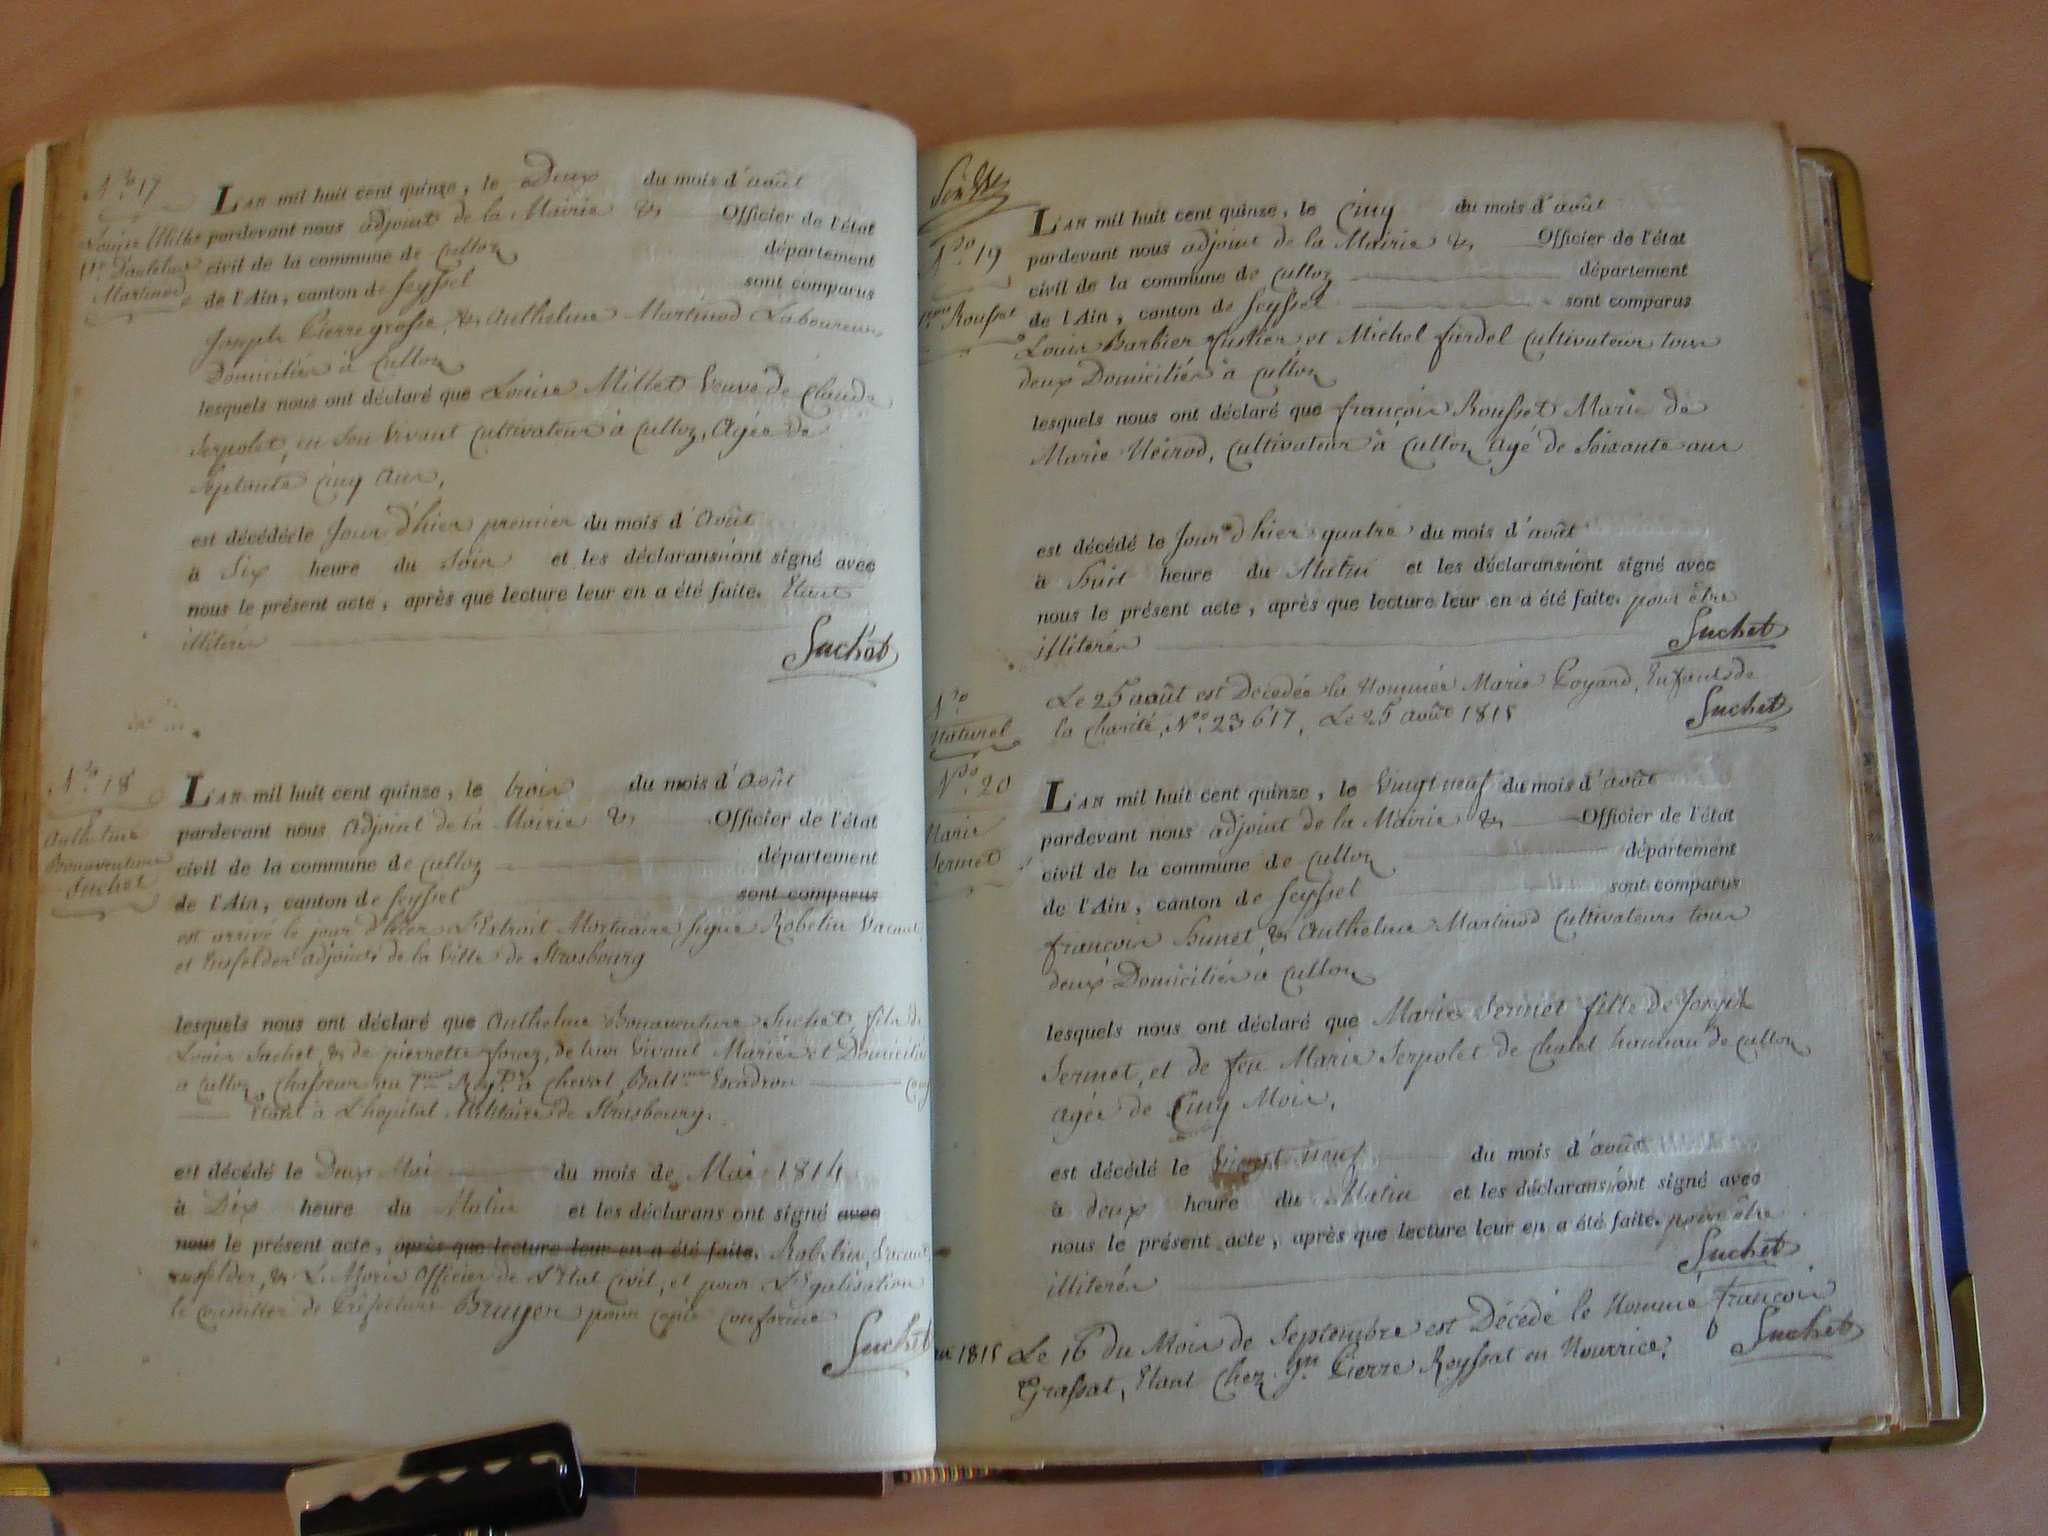 N.º 17
Louise Millet
Martinod
L'an mil huit cent quinze, le Deux du mois d'août
pardevant nous adjoint de la Mairie & Officier de l'état
civil de la commune de Culloz département
de l'Ain, canton de Seyssel sont comparus
Joseph Pierregrosse, & Anthelme Martinod Laboureurs
Domiciliés à Culloz
lesquels nous ont déclaré que Louise Millet Veuve de Claude
Serpolet, en son vivant Cultivateur à Culloz, Agée de
Septante Cinq Ans,
est décédée le Jour d'hier premier du mois d'Août
à Six heure du Soir et les déclarans n'ont signé avec
nous le présent acte, après que lecture leur en a été faite. Etant
illiteré
Suchet
N.º 18
Anthelme
Bonaventure
Suchet
L'an mil huit cent quinze, le trois du mois d'Août
pardevant nous Adjoint de la Mairie & Officier de l'état
civil de la commune de Culloz département
de l'Ain, canton de Seyssel sont comparus
est arrivé le jour d'hier L'Extrait Mortuaire, signé Robelin
et Ensfelder adjoint de la Ville de Strasbourg
lesquels nous ont déclaré que Anthelme Bonaventure Suchet, fils de
Louis Suchet, & de pierrette, de leur Vivant Mariés et Domiciliés
à Culloz, Chasseur au 7.me Reg.t à Cheval, Escadron
Etant à L'hopital Militaire de Strasbourg.
est décédé le Deux Mai du mois de Mai 1814
à Dix heure du Matin et les déclarans ont signé avec
nous le présent acte, après que lecture leur en a été faite. Robelin,
Ensfelder, & L. Officier de L'Etat Civil, et pour Légalisation
le Conseiller de Préfecture Bruyer pour copie conforme
Suchet
N.º 19
Rousset
L'an mil huit cent quinze, le Cinq du mois d'août
pardevant nous adjoint de la Mairie & Officier de l'état
civil de la commune de Culloz département
de l'Ain, canton de Seyssel sont comparus
Louis Barbier et Michel fardel Cultivateur tous
deux Domiciliés à Culloz
lesquels nous ont déclaré que françois Rousset Marié de
Marie Neirod, Cultivateur à Culloz Agé de Soixante ans
est décédé le Jour d'hier quatre du mois d'août
à huit heure du Matin et les déclarans n'ont signé avec
nous le présent acte, après que lecture leur en a été faite. pour être
illiterés
Suchet
N.º
Naturel
Le 25 août est Décédée la Nommée Marie Goyard, Enfants de
la Charité, N.º 23617, Le 25 Août 1815
Suchet
N.º 20
Marie
Sermet
L'an mil huit cent quinze, le Vingt neuf du mois d'août
pardevant nous adjoint de la Mairie & Officier de l'état
civil de la commune de Culloz département
de l'Ain, canton de Seyssel sont comparus
françois hunet, & Anthelme Martinod Cultivateurs tous
deux Domiciliés à Culloz
lesquels nous ont déclaré que Marie Sermet fille de Joseph
Sermet, et de feu Marie Serpolet de Chatel hameau de Culloz
agée de Cinq Mois,
est décédé le Vingt neuf du mois d'août
à deux heure du Matin et les déclarans n'ont signé avec
nous le présent acte, après que lecture leur en a été faite. pour être
illiterés
Suchet
1815 Le 16 du Mois de Septembre est Décédé le Nommé françois
Grassat, Etant Chez J.n Pierre Reyssat en Nourrice.
Suchet